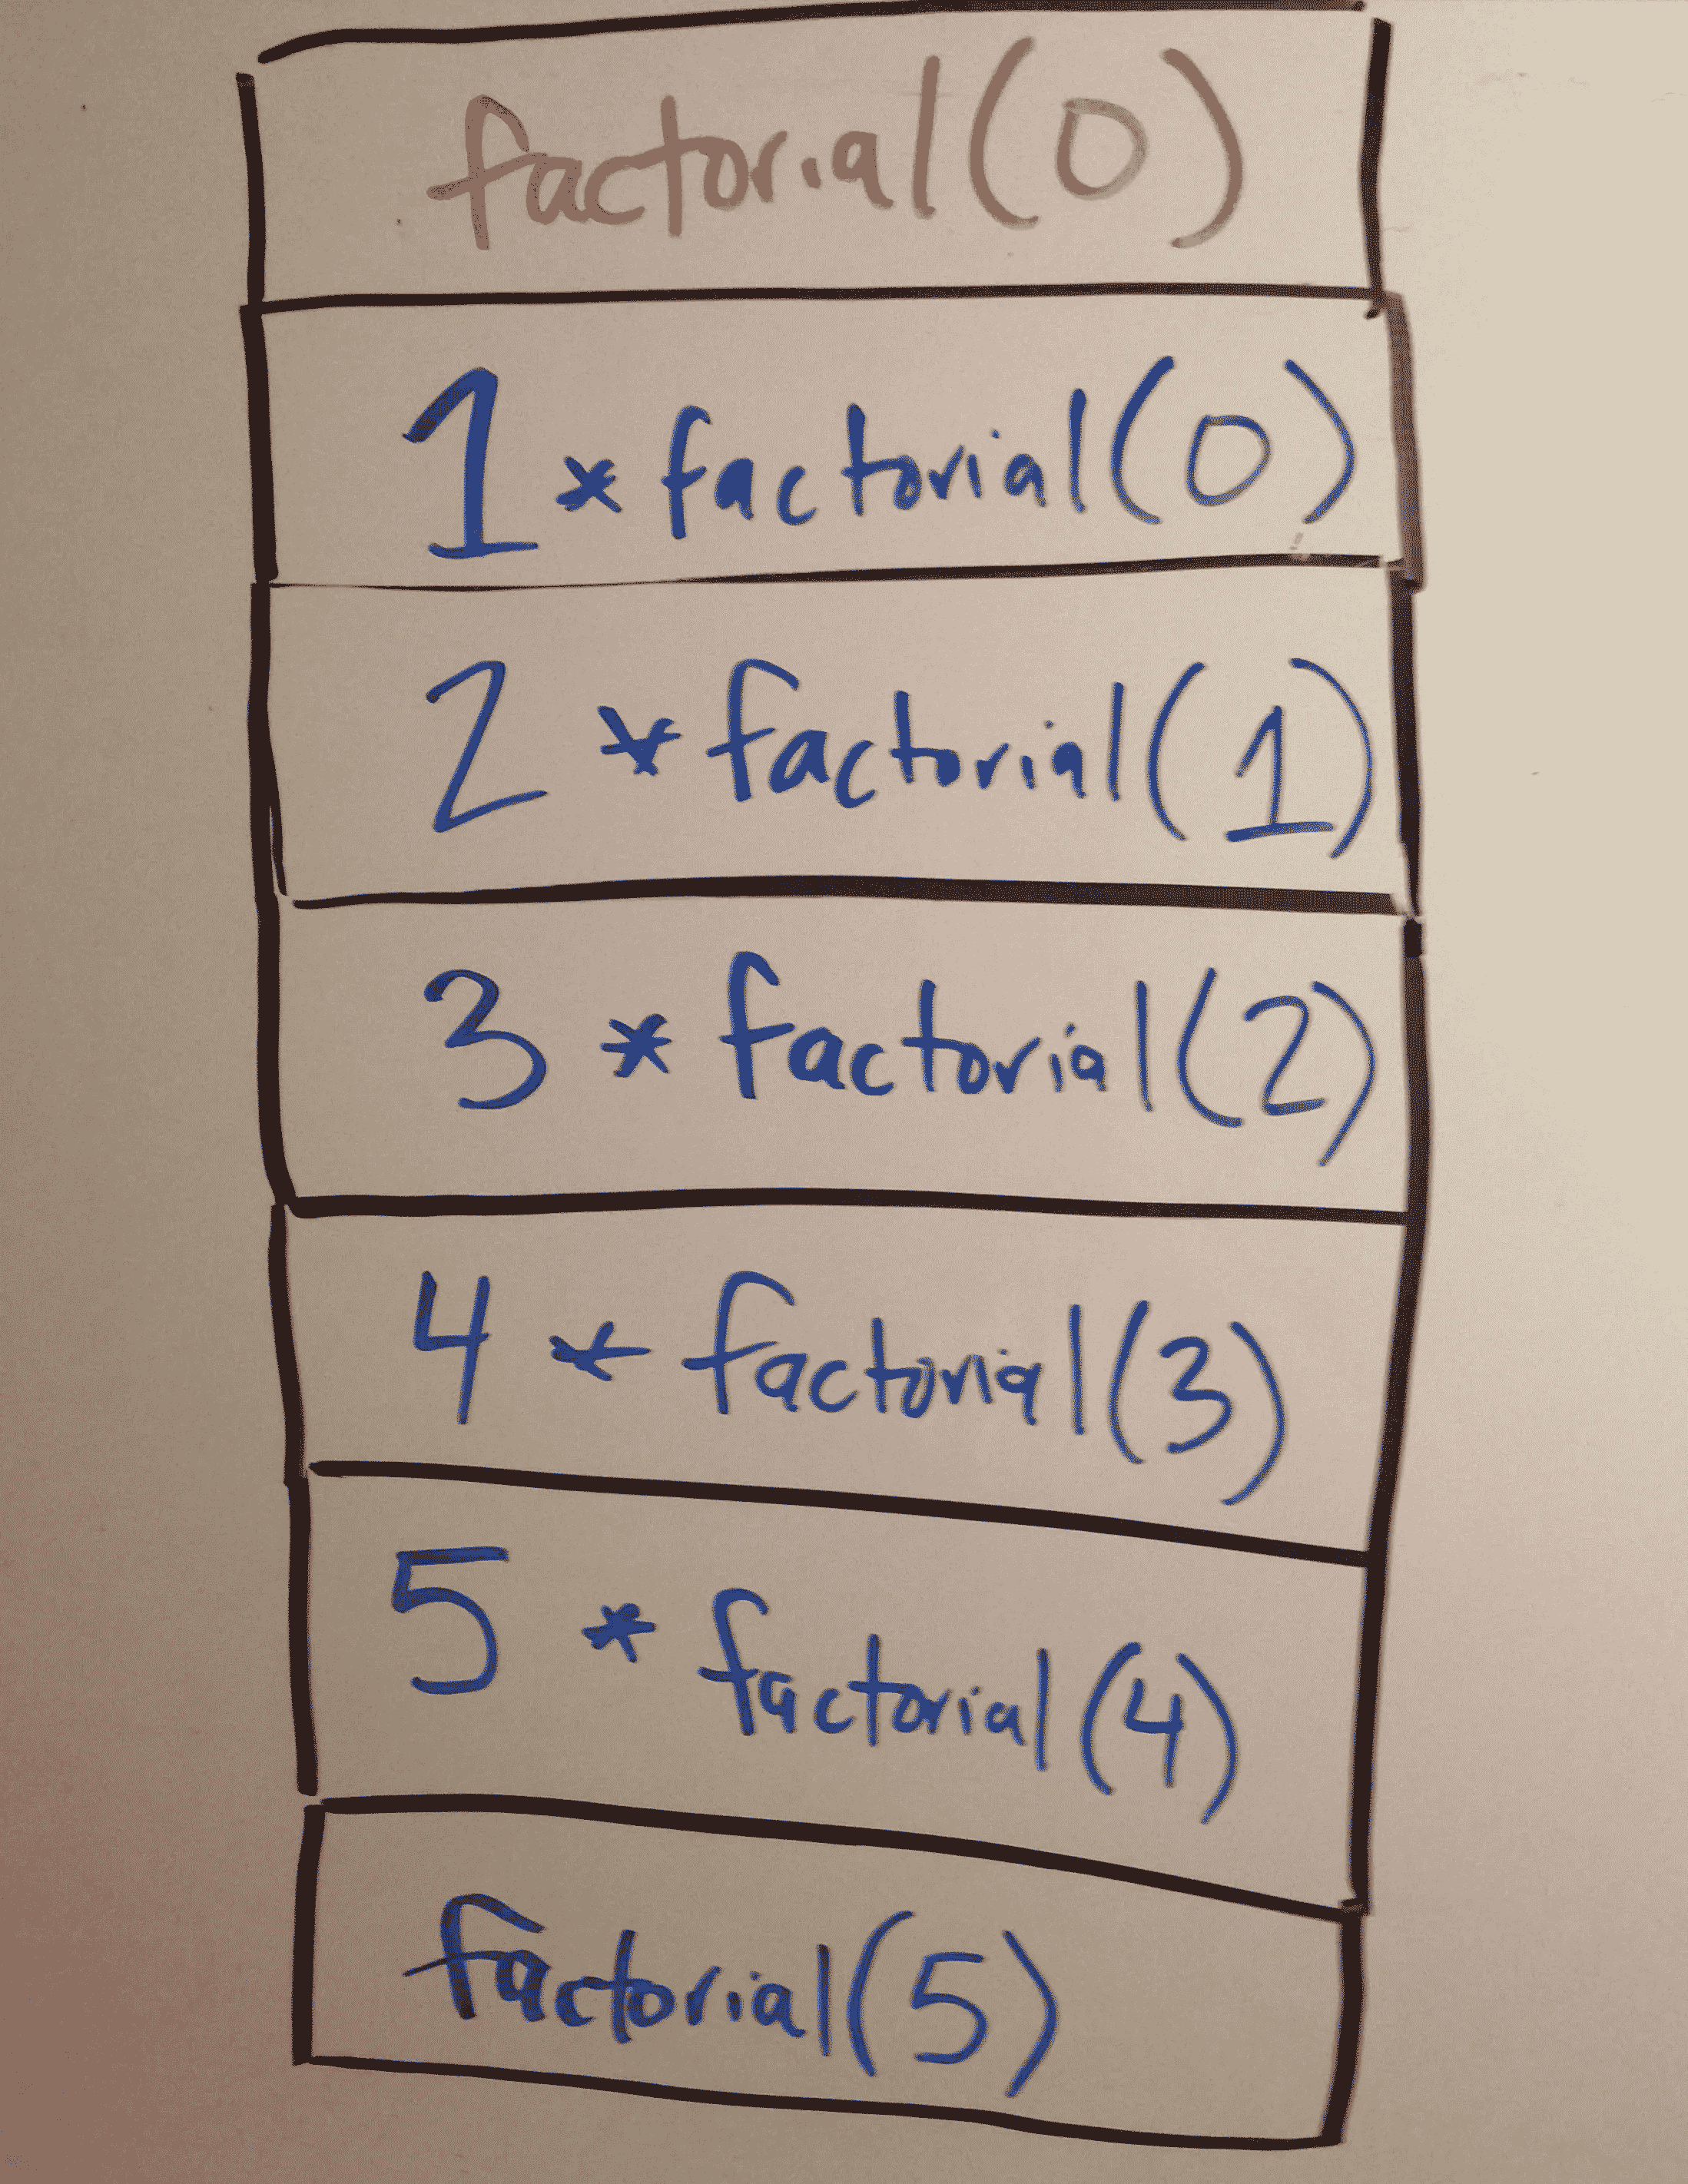 factorial(0)
1 * factorial(0)
2 * factorial(1)
3 * factorial(2)
4 * factorial(3)
5 * factorial(4)
factorial(5)